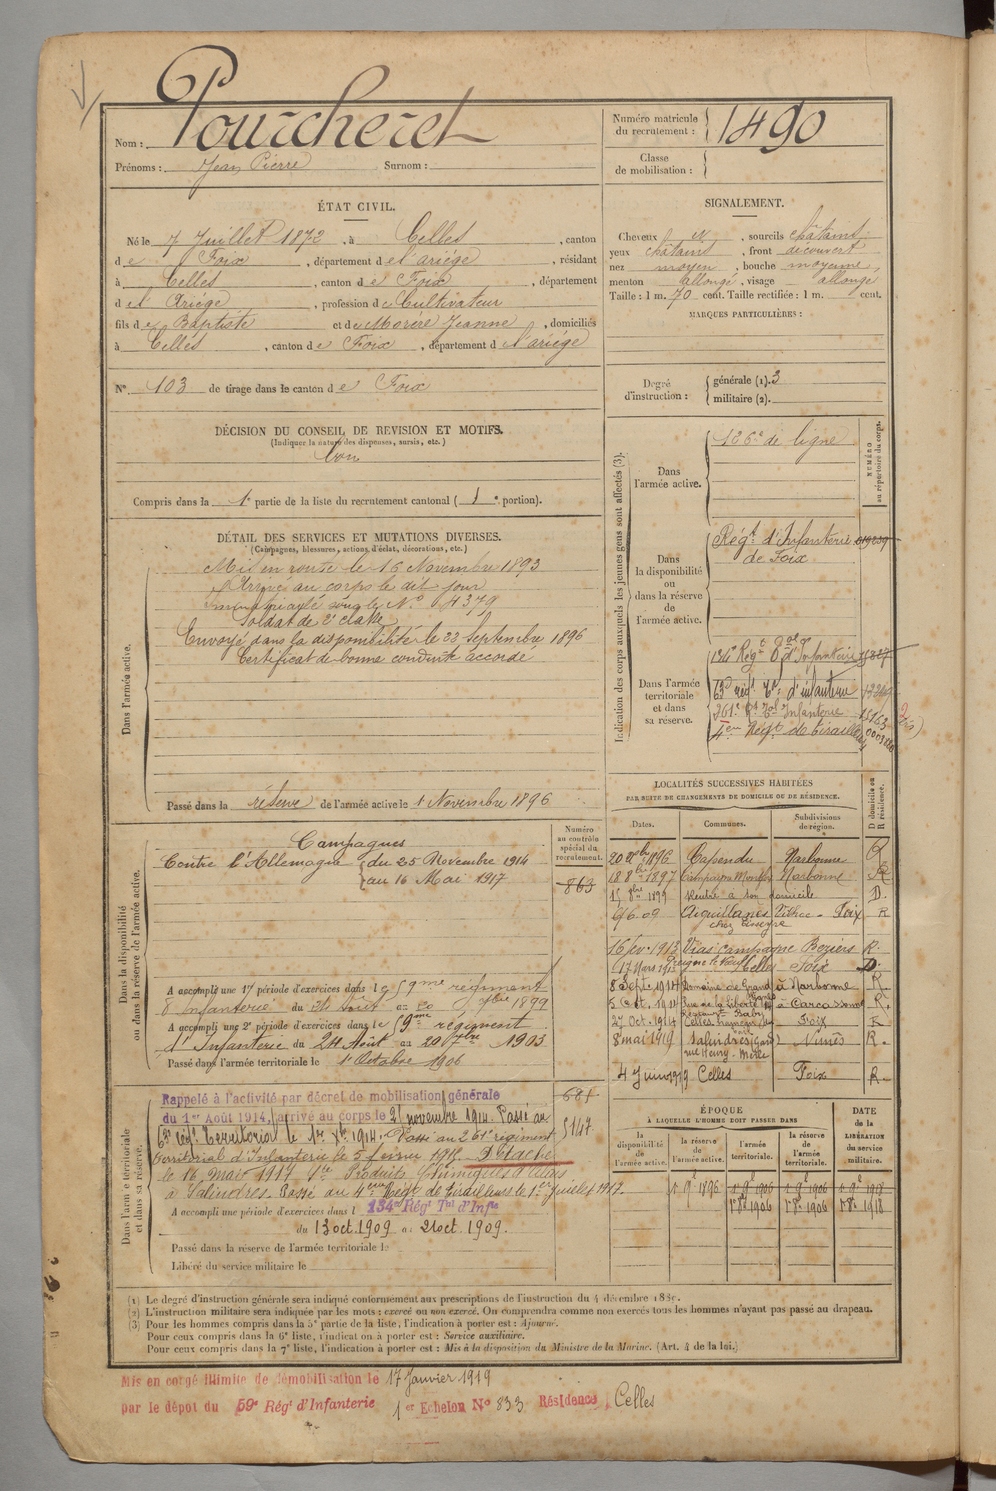 Pourcheret
Nom :
Prénoms : Jean Pierre Surnom :
Numéro matricule du recrutement : 1490
Classe de mobilisation :
ÉTAT CIVIL.
Né le 7 Juillet 1872, à Celles, canton
de Foix, département de l'ariège, résidant
à Celles, canton de Foix, département
de l'Ariège, profession de Cultivateur
fils de Baptiste et de Morère Jeanne, domiciliés
à Celles, canton de Foix, département de l'ariège
N° 103 de tirage dans le canton de Foix
SIGNALEMENT.
Cheveux, sourcils châtains
yeux châtains, front découvert
nez moyen, bouche moyenne,
menton allongé, visage allongé
Taille : 1 m. 70 cent. Taille rectifiée : 1 m. cent.
MARQUES PARTICULIÈRES :
Degré d'instruction : générale (1). 3
militaire (2).
DÉCISION DU CONSEIL DE REVISION ET MOTIFS.
(Indiquer la nature des dispenses, sursis, etc.)
bon
Compris dans la 1e partie de la liste du recrutement cantonal (1e portion).
DÉTAIL DES SERVICES ET MUTATIONS DIVERSES.
(Campagnes, blessures, actions d'éclat, décorations, etc.)
Dans l'armée active.
Mis en route le 16 Novembre 1893
Arrivé au corps le dit jour
immatriculé sous le N° 4379
Soldat de 2e classe
Envoyé dans la disponibilité le 23 Septembre 1896
Certificat de bonne conduite accordé
Passé dans la réserve de l'armée active le 1 Novembre 1896
Indication des corps auxquels les jeunes gens sont affectés (3).
NUMÉRO au répertoire du corps.
Dans l'armée active.
126e de ligne
Dans la disponibilité ou dans la réserve de l'armée active.
Régt d'Infanterie
de Foix
Dans l'armée territoriale et dans sa réserve.
134e Régt Tal d'Infanterie
63e régt Tal d'infanterie
261e Rt Tal Infanterie 15163
4em Régt de tirailleurs
Dans la disponibilité ou dans la réserve de l'armée active.
Numéro au contrôle spécial du recrutement.
863
Campagnes
Contre l'Allemagne du 25 Novembre 1914
au 16 Mai 1917
A accompli une 1re période d'exercices dans le 59me régiment
d'Infanterie du 24 Août au 20 7bre 1899
A accompli une 2e période d'exercices dans le 59me régiment
d'Infanterie du 24 Août au 20 7bre 1903
Passé dans l'armée territoriale le 1 Octobre 1906
LOCALITÉS SUCCESSIVES HABITÉES
PAR SUITE DE CHANGEMENTS DE DOMICILE OU DE RÉSIDENCE.
D domicile ou R résidence.
Dates. Communes. Subdivisions de région.
20 Xbre 1896 Capendu Narbonne R
18 8bre 1897 Narbonne R
15 8bre 1899 Rentré à son domicile D.
6-6-09 Aiguillanes Foix R
16 fév. 1913 Vias campagne Beziers R.
17 Mars 1913 Celles Foix D.
8 Sept. 1914 Domaine de Grand à Narbonne R.
5 Oct. 1914 Rue de la liberté à Carcassonne R.
27 Oct. 1914 Celles Foix R
8 mai 1919 Salindres (Gard) Nimes R.
rue Henry Merle
4 Juin 1919 Celles Foix R.
Dans l'armée territoriale et dans sa réserve.
Rappelé à l'activité par décret de mobilisation générale
du 1er Août 1914, arrivé au corps le 25 novembre 1914. Passé au
63e régt territorial le 1er Xbre 1914. Passé au 261e régiment
territorial d'Infanterie le 5 février 1915. Détaché
le 16 mai 1917 Sté Produits Chimiques d'Alais
à Salindres. Passé au 4eme Régt de Tirailleurs le 1er Juillet 1917.
681
5147
A accompli une période d'exercices dans le 134e Régt Tal d'Infie
du 13 oct. 1909 au 21 oct. 1909.
Passé dans la réserve de l'armée territoriale le
Libéré du service militaire le
ÉPOQUE
À LAQUELLE L'HOMME DOIT PASSER DANS
DATE DE LA LIBÉRATION DU SERVICE militaire.
la disponibilité de l'armée active. la réserve de l'armée active. l'armée territoriale. la réserve de l'armée territoriale.
1 9e 1896 1 9e 1906 1 9e 1906 1 9e 1918
1 8e 1906 1 8e 1906 1 8e 1918
(1) Le degré d'instruction générale sera indiqué conformément aux prescriptions de l'instruction du 4 décembre 1889.
(2) L'instruction militaire sera indiquée par les mots : exercé ou non exercé. On comprendra comme non exercés tous les hommes n'ayant pas passé au drapeau.
(3) Pour les hommes compris dans la 5e partie de la liste, l'indication à porter est : Ajourné.
Pour ceux compris dans la 6e liste, l'indication à porter est : Service auxiliaire.
Pour ceux compris dans la 7e liste, l'indication à porter est : Mis à la disposition du Ministre de la Marine. (Art. 4 de la loi.)
Mis en congé illimité de démobilisation le 17 Janvier 1919
par le dépôt du 59e Régt d'Infanterie 1er Echelon N° 833 Résidence Celles